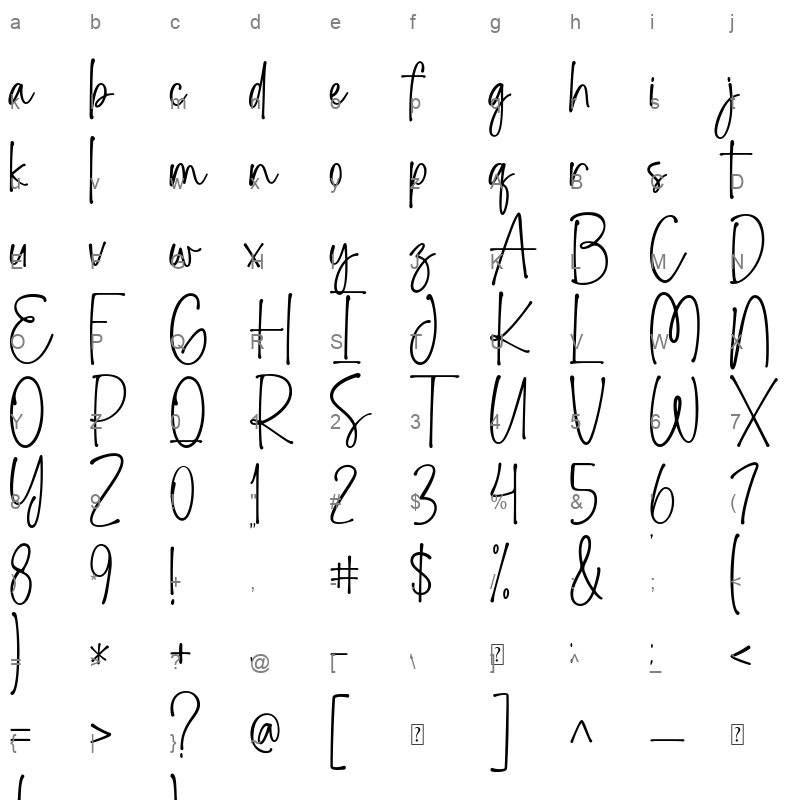 a b c d e f g h i j
a b c d e f g h i j
k l m n o p q r s t
k l m n o p q r s t
u v w x y z A B C D
u v w x y z A B C D
E F G H I J K L M N
E F G H I J K L M N
O P Q R S T U V W X
O P Q R S T U V W X
Y Z 0 1 2 3 4 5 6 7
Y Z 0 1 2 3 4 5 6 7
8 9 ! " # $ % & ' (
8 9 ! " # $ % & ' (
) * + , - . / : ; <
) * + , - ? : ; <
= > ? @ [ \ ] ^ _
= > ? @ [ ? ] ^ _ ?
{ | }